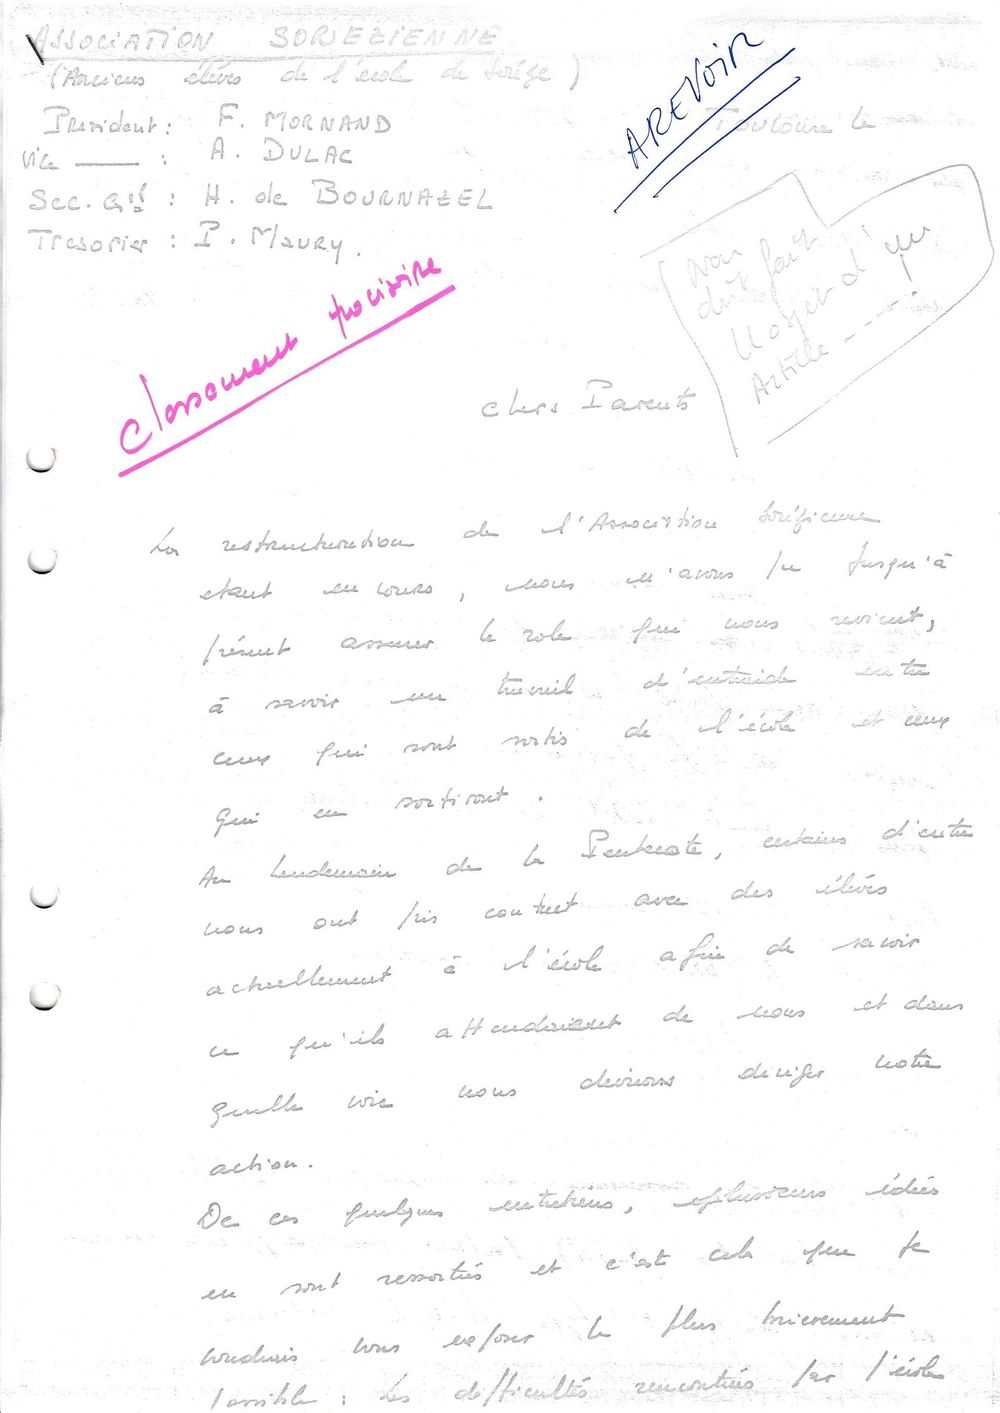 ASSOCIATION SOREZIENNE
(Anciens élèves de l'école de Sorèze)
AREVOIR
Président : F. MORNAND
Toulouse le
Vice —— : A. DULAC
Sec. Gal : H. de BOURNAZEL
Trésorier : P. Maury.
fait
d'un
Article - - - !
classement provisoire
Chers Parents
La restructuration de l'Association Sorézienne
étant en cours, nous n'avons pu jusqu'à
présent assurer le role qui nous revient,
à savoir un travail d'entraide entre
ceux qui sont sortis de l'école et ceux
qui en sortiront.
Au lendemain de la Pentecote, certains d'entre
nous ont pris contact avec des élèves
actuellement à l'école afin de savoir
ce qu'ils attendaient de nous et dans
quelle voie nous devions diriger notre
action.
De ces quelques entretiens, plusieurs idées
en sont ressorties et c'est cela que je
voudrais vous exposer le plus brièvement
possible : les difficultés rencontrées par l'école